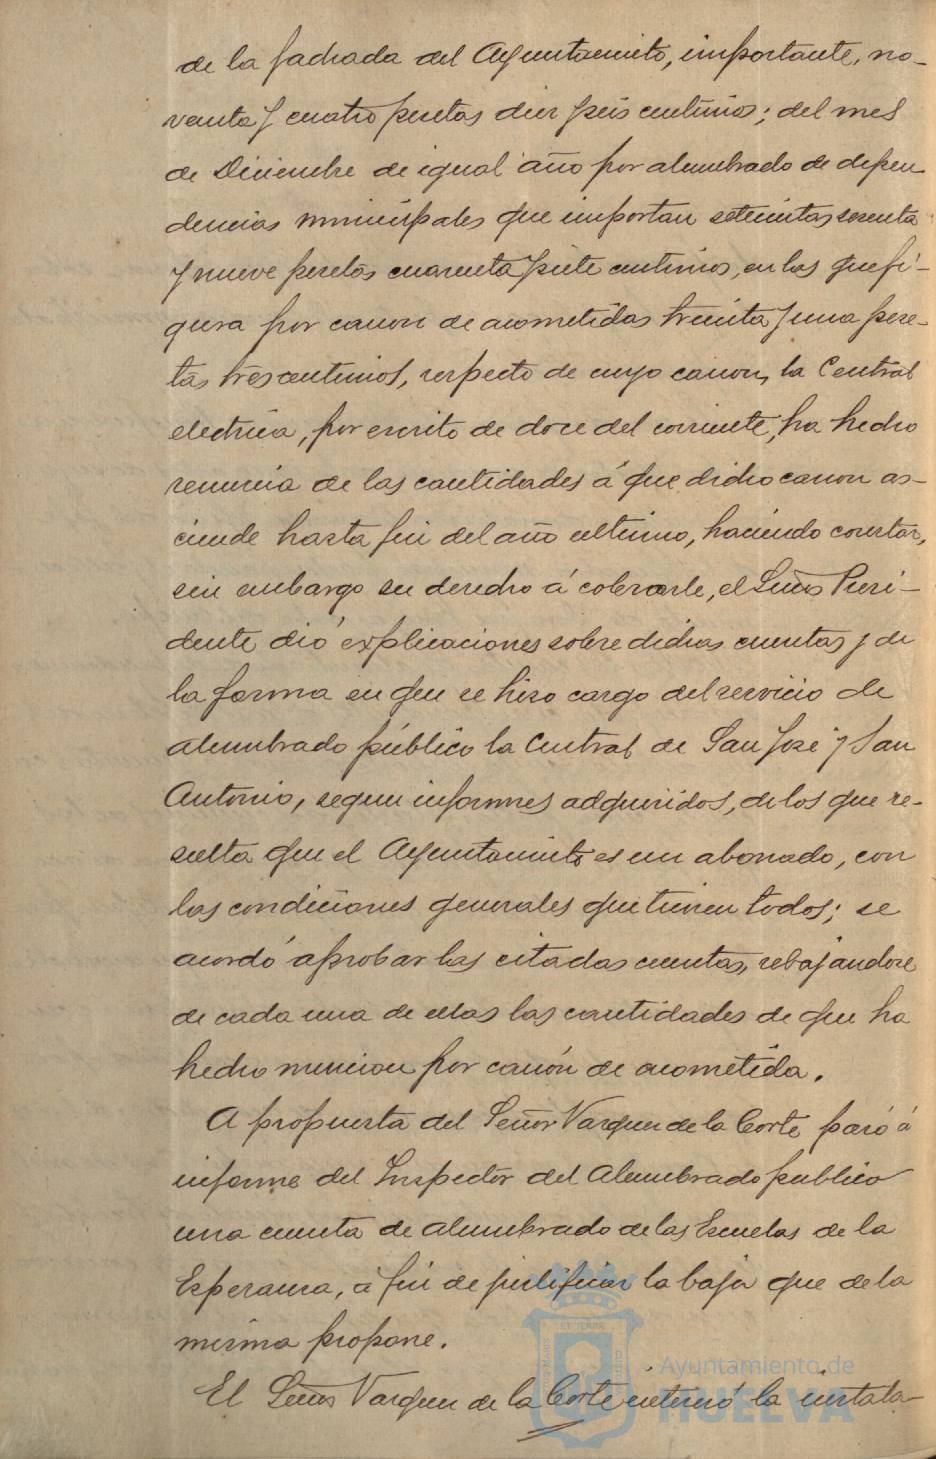 de la fachada del Ayuntamiento, importante, no-
venta y cuatro pesetas diez y seis centimos; del mes
de Diciembre de igual año por alumbrado de depen
dencias municipales que importan setecientas sesenta
y nueve pesetas cuarenta y siete centimos, en las que fi-
gura por canon de acometidas treinta y una pese-
tas tres centimos, respecto de cuyo canon, la Central
electrica, por escrito de doce del corriente, ha hecho
renuncia de las cantidades á que dicho canon as-
ciende hasta fin del año ultimo, haciendo constar,
sin embargo su derecho á cobrarle, el Señor Presi-
dente dió explicaciones sobre dichas cuentas y de
la forma en que se hizo cargo del servicio de
alumbrado público la Central de San José y San
Antonio, segun informes adquiridos, de los que re-
sulta que el Ayuntamiento es un abonado, con
las condiciones generales que tienen todos; se
acordó aprobar las citadas cuentas, rebajandose
de cada una de ellas las cantidades de que ha
hecho mencion por canón de acometida.
A propuesta del Señor Vazquez de la Corte pasó á
informe del Inspector del Alumbrado publico
una cuenta de alumbrado de las Escuelas de la
Esperanza, á fin de justificar la baja que de la
misma propone.
El Señor Vazquez de la Corte interesó la instala-
Ayuntamiento de
HUELVA